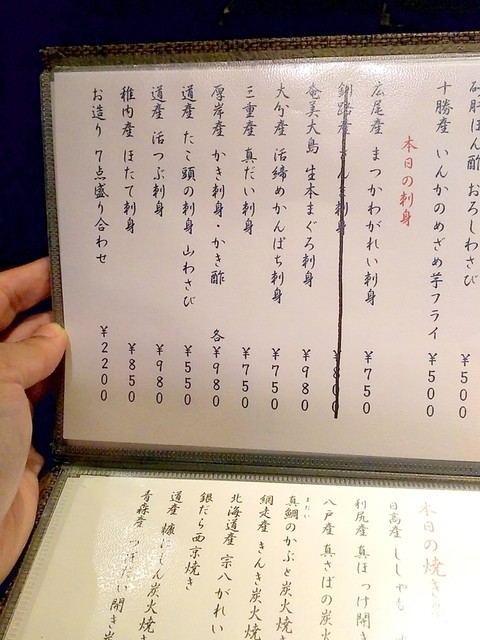 砂肝ぽん酢 おろしわさび ¥500
十勝産 いんかのめざめ芋フライ ¥500
本日の刺身
広尾産 まつかわがれい刺身 ¥750
釧路産 さんま刺身 ¥980
奄美大島 生本まぐろ刺身 ¥980
大分産 活締めかんぱち刺身 ¥750
三重産 真だい刺身 ¥750
厚岸産 かき刺身・かき酢 各¥980
道産 たこ頭の刺身 山わさび ¥550
道産 活つぶ刺身 ¥980
稚内産 ほたて刺身 ¥850
お造り 7点盛り合わせ ¥2200
本日の焼き
日高産 ししゃも
利尻産 真ほっけ開き
八戸産 真さばの炭火
真鯛のかぶと炭火焼き
またい
網走産 きんき炭火焼
北海道産 宗八がれい
銀だら西京焼き
道産 糠にしん炭火焼き
青森産 つぼだい開き炭